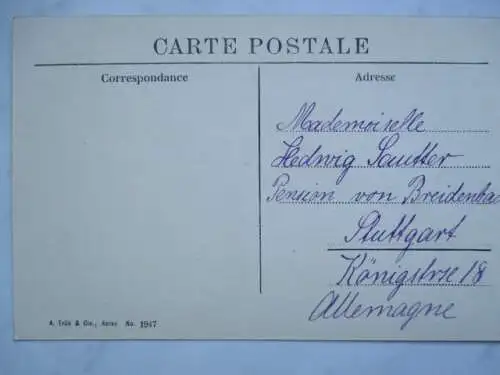 CARTE POSTALE
Correspondance
Adresse
Mademoiselle
Hedwig Sautter
Pension von Breidenba
Stuttgart
Königstrse 18
Allemagne
A. Trüb & Cie., Aarau No. 1947